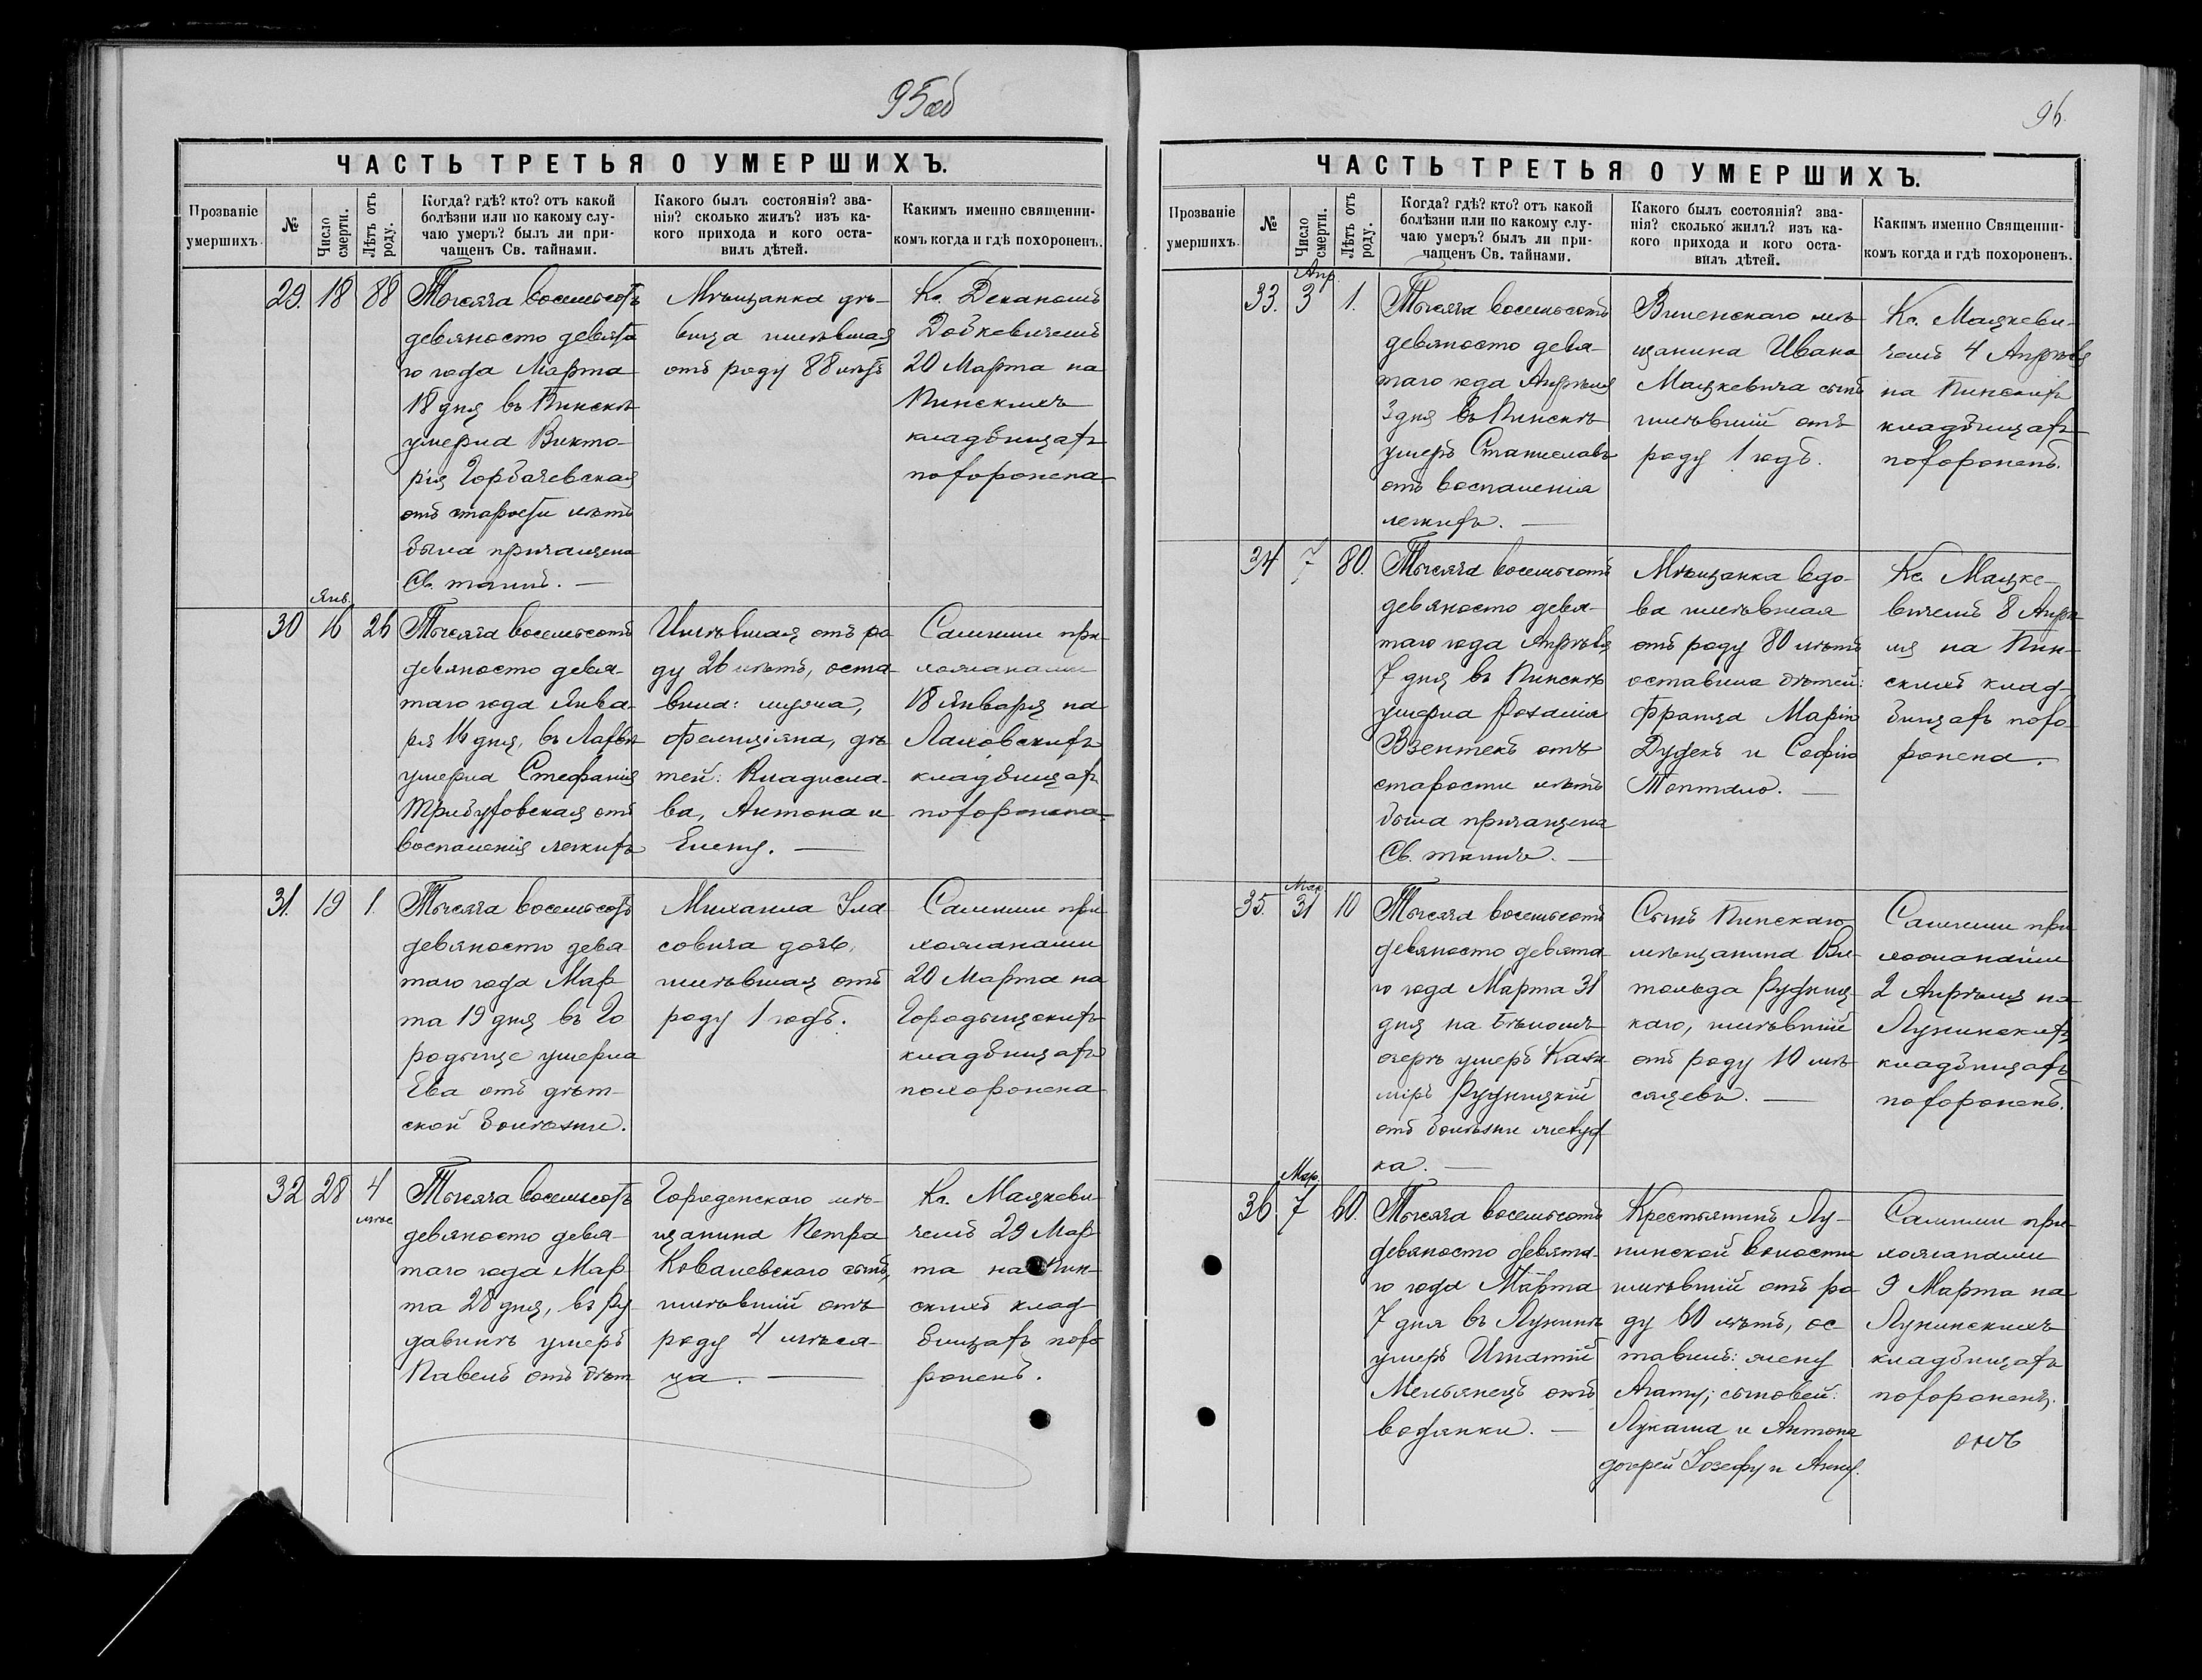 95об
ЧАСТЬ ТРЕТЬЯ О УМЕРШИХЪ.
Прозваніе умершихъ.
№
Число смерти.
Лѣтъ отъ роду.
Когда? гдѣ? кто? отъ какой
болѣзни или по какому слу-
чаю умеръ? былъ ли при-
чащенъ Св. тайнами.
Какого былъ состоянія? зва-
нія? сколько жилъ? изъ ка-
кого прихода и кого оста-
вилъ дѣтей.
Какимъ именно священни-
комъ когда и гдѣ похороненъ.
29. 18 88
Тысяча восемьсотъ
девяносто девята
го года Марта
18 дня въ Пинскѣ
умерла Викто-
рія Горбачевская
отъ старости лѣтъ
была причащена
Св. таинъ. —
Мѣщанка дѣ-
вица имѣвшая
отъ роду 88 лѣтъ
Кс. Деканомъ
20 Марта на
Пинскихъ
кладбищахъ
похоронена
Янв.
30 16 26
Тысяча восемьсотъ
девяносто девя-
таго года Янва-
ря 16 дня, въ Лахвѣ
умерла Стефанія
отъ
воспаленія легкихъ
Имѣвшая отъ ро
ду 26 лѣтъ, оста-
вила: мужа,
Фелиціяна, дѣ-
тей: Владисла-
ва, Антона и
Елену. —
Самими при-
хожанами
18 Января на
Лаховскихъ
кладбищахъ
похоронена
31. 19 1.
Тысяча восемьсотъ
девяносто девя
таго года Мар
та 19 дня въ Го
родыще умерла
Ева отъ дѣт-
ской болѣзни.
Михаила Ула
совича дочь,
имѣвшая отъ
роду 1 годъ.
Самими при
хожанами
20 Марта на
Городыщскихъ
кладбищахъ
похоронена
32 28 4
мѣс
Тысяча восемьсотъ
девяносто девя-
таго года Мар
та 28 дня, въ Ру
давинѣ умеръ
Павелъ отъ дѣт
Городенскаго мѣ-
щанина Петра
Ковалевскаго сынъ,
имѣвшій отъ
роду 4 мѣся-
ца. —
Кс. Мацкеви
чемъ 29 Мар
та на Пин-
скихъ клад
бищахъ похо
роненъ.
96.
ЧАСТЬ ТРЕТЬЯ О УМЕРШИХЪ.
Прозваніе умершихъ.
№
Число смерти.
Лѣтъ отъ роду.
Когда? гдѣ? кто? отъ какой
болѣзни или по какому слу-
чаю умеръ? былъ ли при-
чащенъ Св. тайнами.
Какого былъ состоянія? зва-
нія? сколько жилъ? изъ ка-
кого прихода и кого оста-
вилъ дѣтей.
Какимъ именно Священни-
комъ когда и гдѣ похороненъ.
Апр
33. 3 1.
Тысяча восемьсотъ
девяносто девя-
таго года Апрѣля
3 дня въ Пинскѣ
умеръ Станиславъ
отъ воспаленія
легкихъ. —
Виленскаго мѣ
щанина Ивана
Мацкевича сынъ
имѣвшій отъ
роду 1 годъ.
Кс. Мацкеви-
чемъ 4 Апрѣля
на Пинскихъ
кладбищахъ
похороненъ.
34 7 80.
Тысяча восемьсотъ
девяносто девя-
таго года Апрѣля
7 дня въ Пинскѣ
умерла Розалія
Взентекъ отъ
старости лѣтъ
была причащена
Св. таинъ. —
Мѣщанка вдо-
ва имѣвшая
отъ роду 80 лѣтъ
оставила дѣтей:
Франца Марію
Дудекъ и Софію
Топтало. —
Кс. Мацке-
вичемъ 8 Апрѣ
ля на Пин-
скихъ клад-
бищахъ похо-
ронена.
Мар.
35. 31 10
Тысяча восемьсотъ
девяносто девята-
го года Марта 31
дня на Бѣломъ
озерѣ умеръ Кази
міръ Рудницкій
отъ болѣзни желуд
ка. —
Сынъ Пинскаго
мѣщанина Ви-
тольда Рудниц-
каго, имѣвшій
отъ роду 10 мѣ-
сяцевъ. —
Самими при
хожанами
2 Апрѣля на
Лунинскихъ
кладбищахъ
похороненъ.
Мар.
36. 7 60.
Тысяча восемьсотъ
девяносто девята-
го года Марта
7 дня въ Лунинѣ
умеръ Игнатій
Мельянецъ отъ
водянки. —
Крестьянинъ Лу-
нинской волости
имѣвшій отъ ро
ду 60 лѣтъ, ос-
тавилъ: жену
Агату; сыновей:
Лукаша и Антона
дочерей Іозефу и Анну.
Самими при-
хожанами
9 Марта на
Лунинскихъ
кладбищахъ
похороненъ.